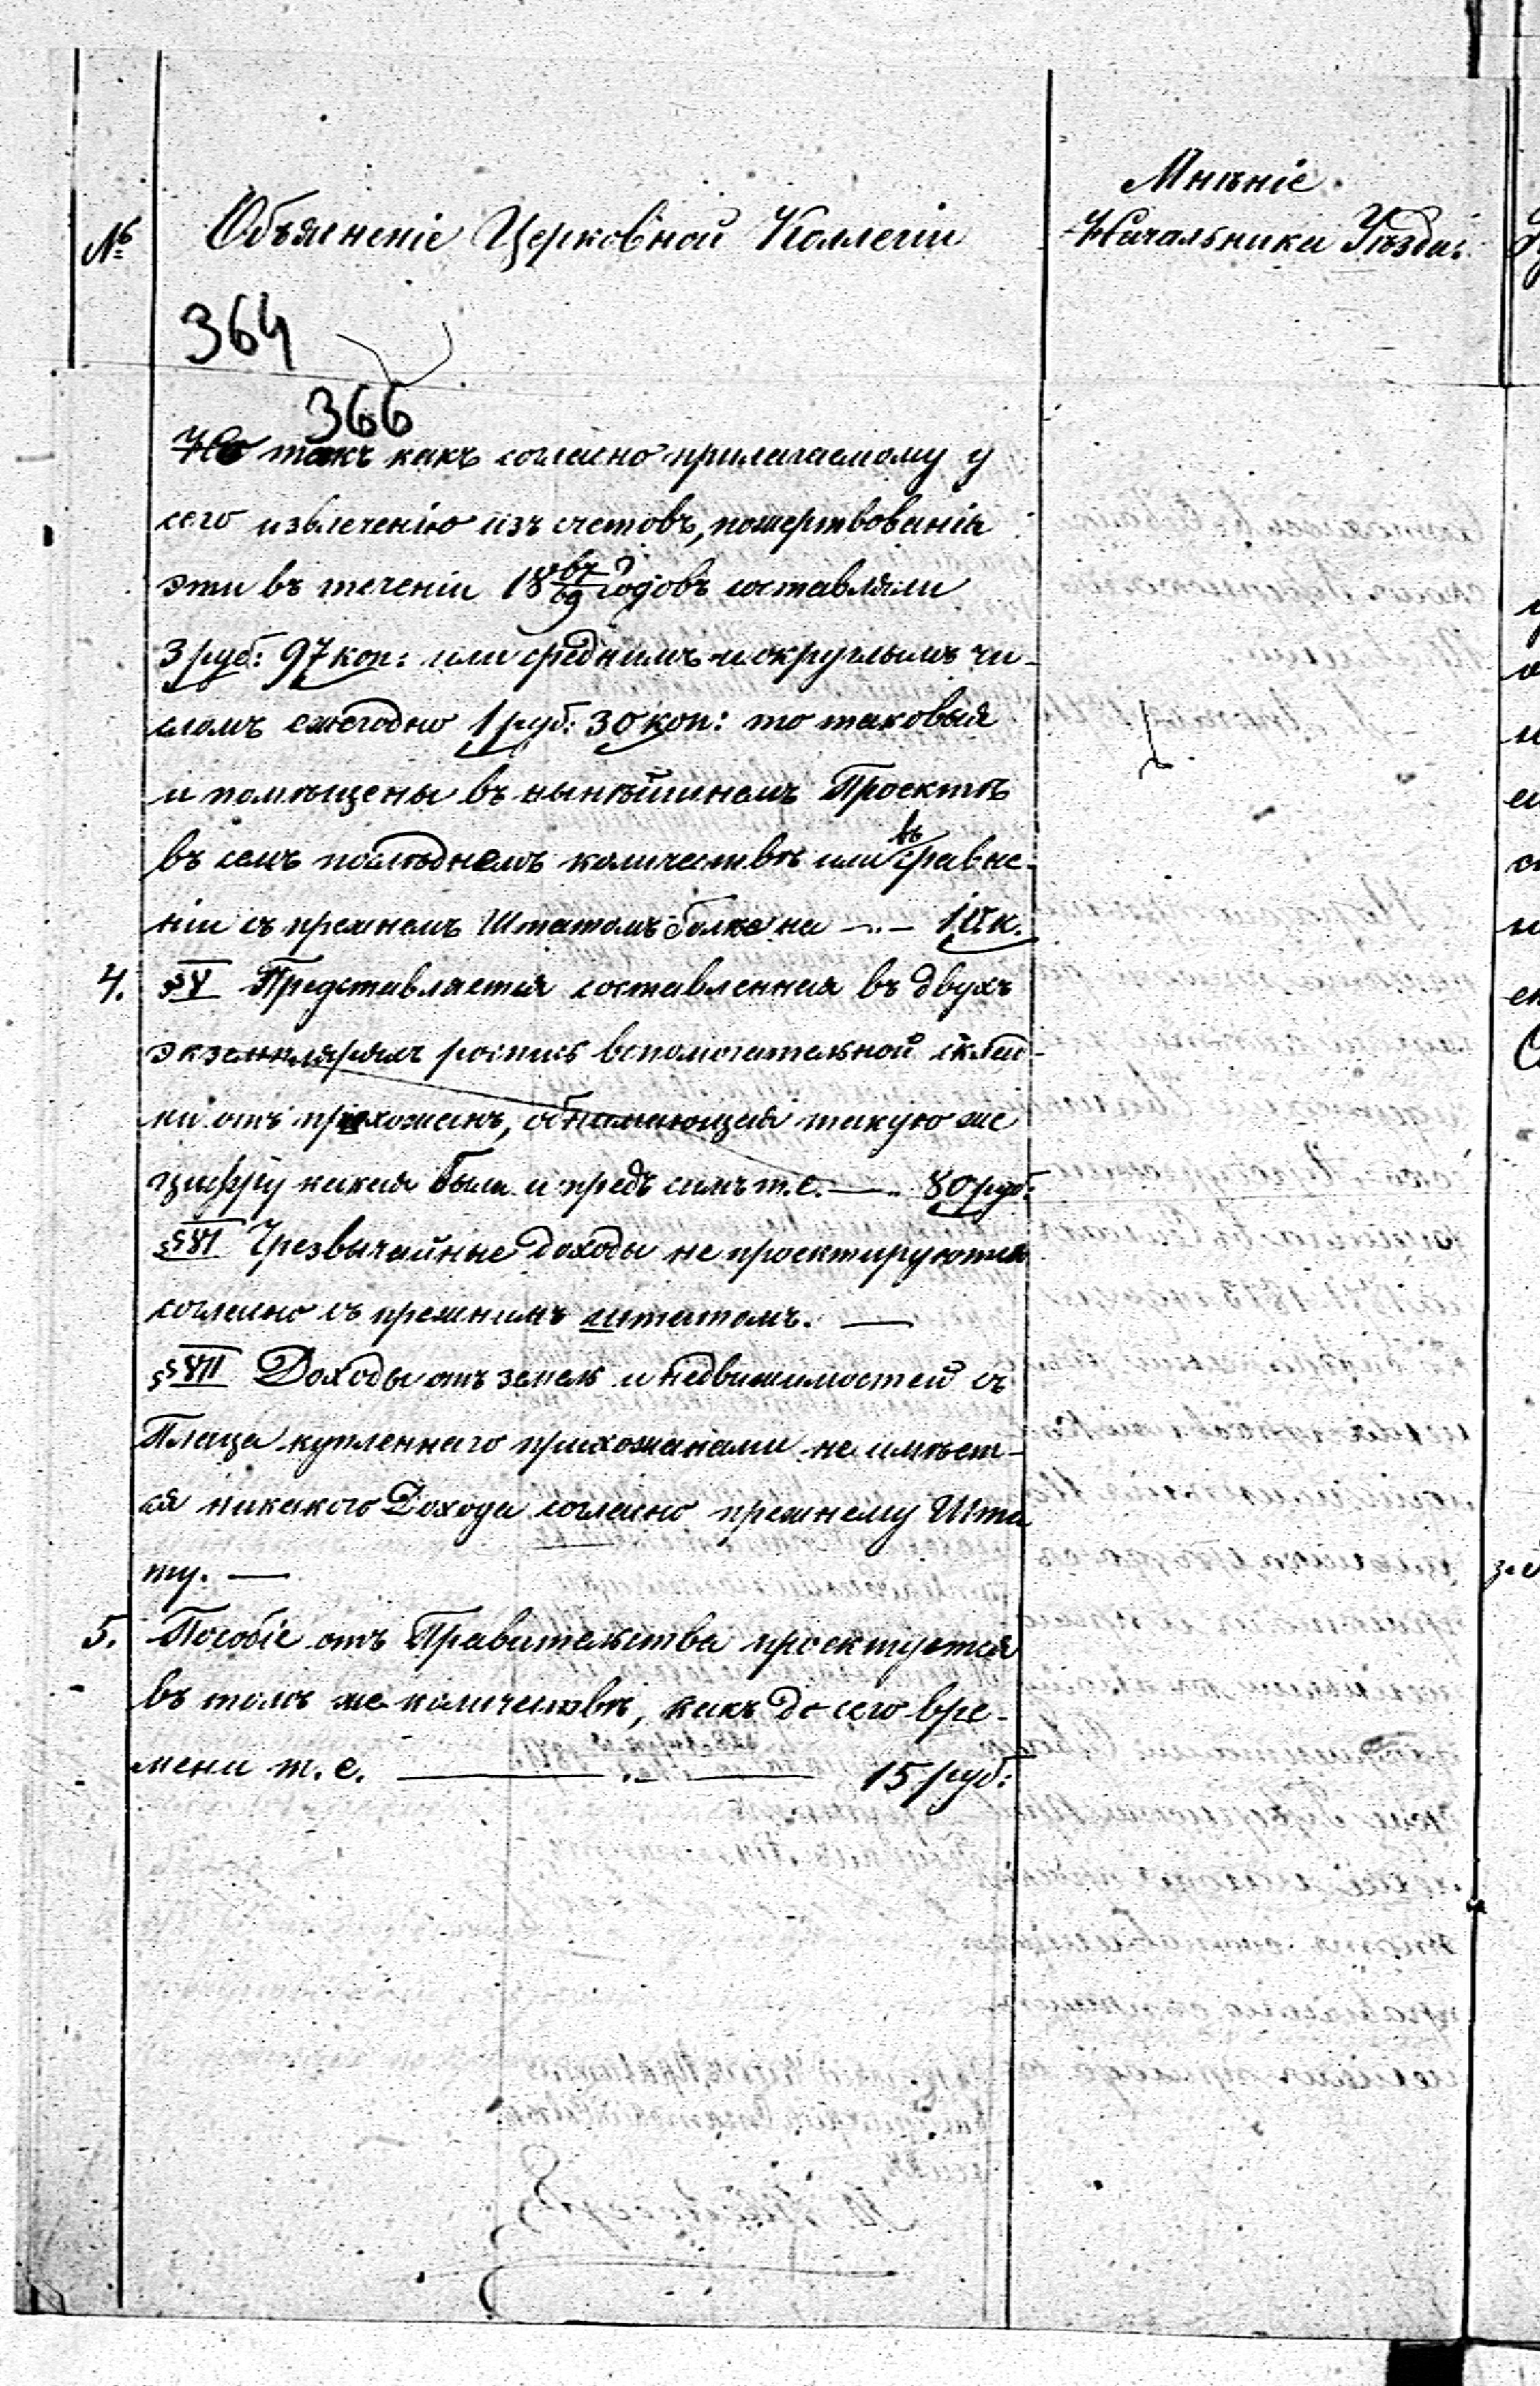 Мнѣніе
№ Объясненіе Церковной Коллегіи Начальника Уѣзда:
364
366
Но такъ какъ согласно прилагаемому у
сего извлеченію изъ счетовъ, пожертвованія
эти въ теченіи 18 67/69 годовъ составляли
3 руб: 97 коп: или среднимъ и округлымъ чи-
сломъ ежегодно 1 руб: 30 коп: то таковыя
и помѣщены въ нынѣшнемъ Проектѣ
въ семъ послѣднемъ количествѣ или въ сравне-
ніи съ прежнемъ Штатомъ болѣе на -.- 10 к.
4. §V Представляется составленная въ двухъ
экземплярахъ роспись вспомогательной склад-
ки отъ прихожанъ, обнимающая такую же
цифру какая была и предъ симъ т. е. —.. 80 руб:
§VI Чрезвычайные доходы не проектируются
согласно съ прежнимъ штатомъ. —
§VII Доходы отъ земель и недвижимостей съ
Плаца купленнаго прихожанами не имѣет-
ся никакого Дохода согласно прежнему Шта
ту. —
5. Пособіе отъ Правительства проектуется
въ томъ же количествѣ, какъ до сего вре-
мени т. е. — .- — 15 руб: